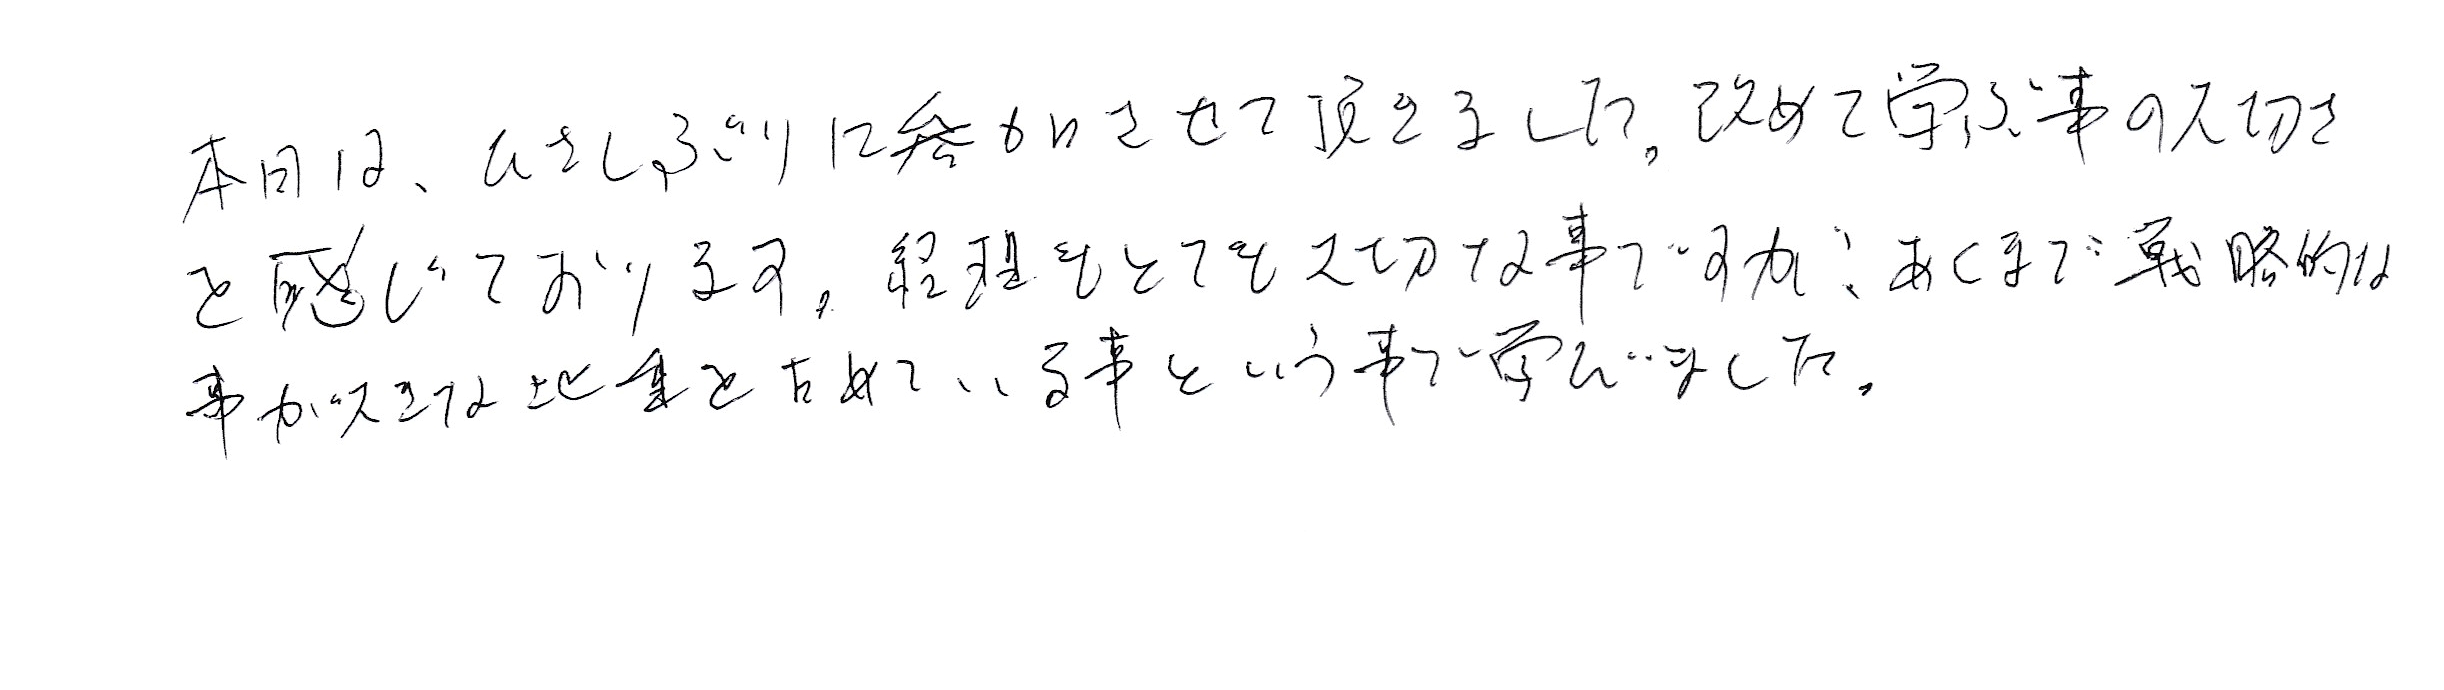 本日は、ひさしぶりに参加させて頂きました。改めて学ぶ事の大切さ
を感じております。経理もとても大切な事ですが、あくまで戦略的な
事が大きな地重を占めている事という事で学んでいました。